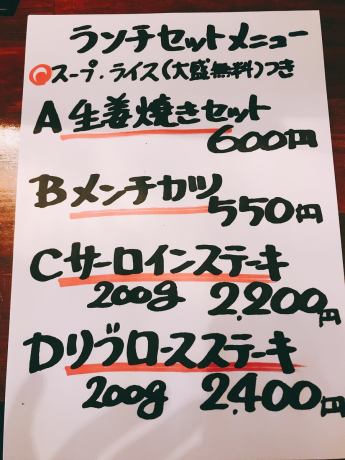 ランチセットメニュー
スープ.ライス(大盛無料)つき
A生姜焼きセット
600円
Bメンチカツ
550円
Cサーロインステーキ
200g 2,200円
Dリブロースステーキ
200g 2,400円